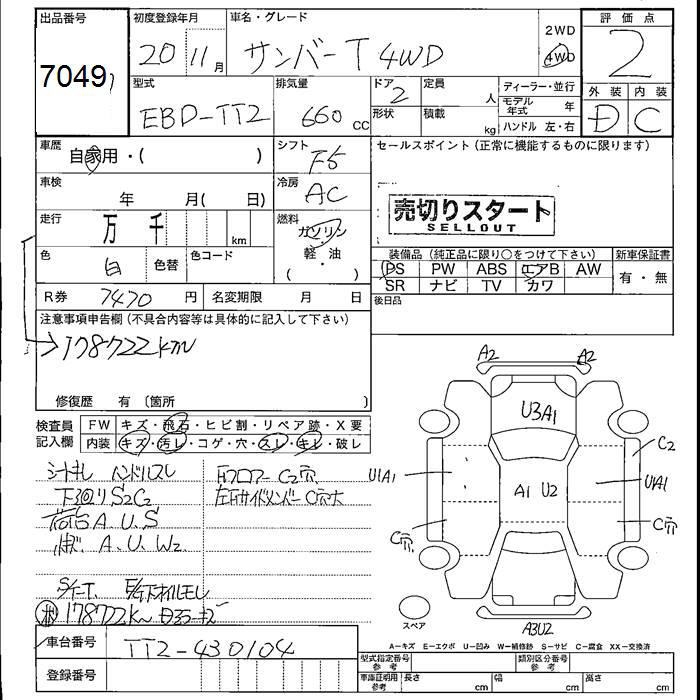 出品番号 初度登録年月 車名・グレード 評価点
7049 20 11月 サンバーT 4WD 2WD 4WD 2
型式 排気量 ドア 定員 ディーラー・並行 外装 内装
EBD-TT2 660cc 2 人 モデル年式 年 D C
形状 積載 kg ハンドル 左・右
車歴 自家用・( ) シフト F5 セールスポイント (正常に機能するものに限ります)
車検 年 月( 日) 冷房 AC
売切りスタート
SELLOUT
走行 万 千 km 燃料 ガソリン
軽・油
( )
色 白 色替 色コード
装備品 (純正品に限り○をつけて下さい) 新車保証書
PS PW ABS エアB AW 有・無
SR ナビ TV カワ
R券 7470円 名変期限 月 日 後日品
注意事項申告欄 (不具合内容等は具体的に記入して下さい)
→178722km
修復歴 有 〔箇所 〕
検査員 FW キズ・飛石・ヒビ割・リペア跡・X要
記入欄 内装 キズ・汚レ・コゲ・穴・スレ・キレ・破レ
シートキレ ハンドルスレ
下回りS2C2
荷台A.U.S
A.U.W2
Fフロアー C2穴
左右サイドメンバー C穴大
S/T E/G下オイルモレ
178722km
A2 A2
U3A1
C2
U1A1 A1 U2 U1A1
C穴 C穴
スペア
A3U2
車台番号 TT2-430104
A-キズ E-エクボ U-凹み W-補修跡 S-サビ C-腐食 XX-交換済
登録番号
型式指定番号 参考 類別区分番号 参考
車庫証明用 参考 長さ cm 幅 cm 高さ cm